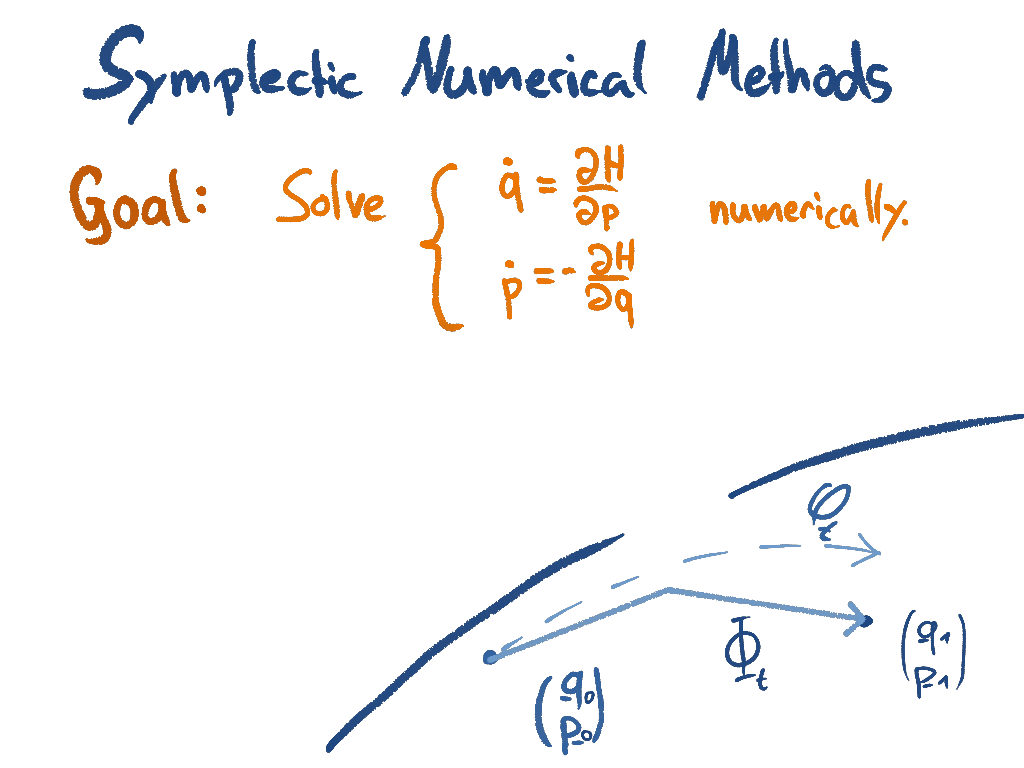 Symplectic Numerical Methods
Goal: Solve { q̇ = ∂H/∂p numerically.
ṗ = - ∂H/∂q
φ_t
Φ_t
(q_1 p_1)
(q_0 p_0)